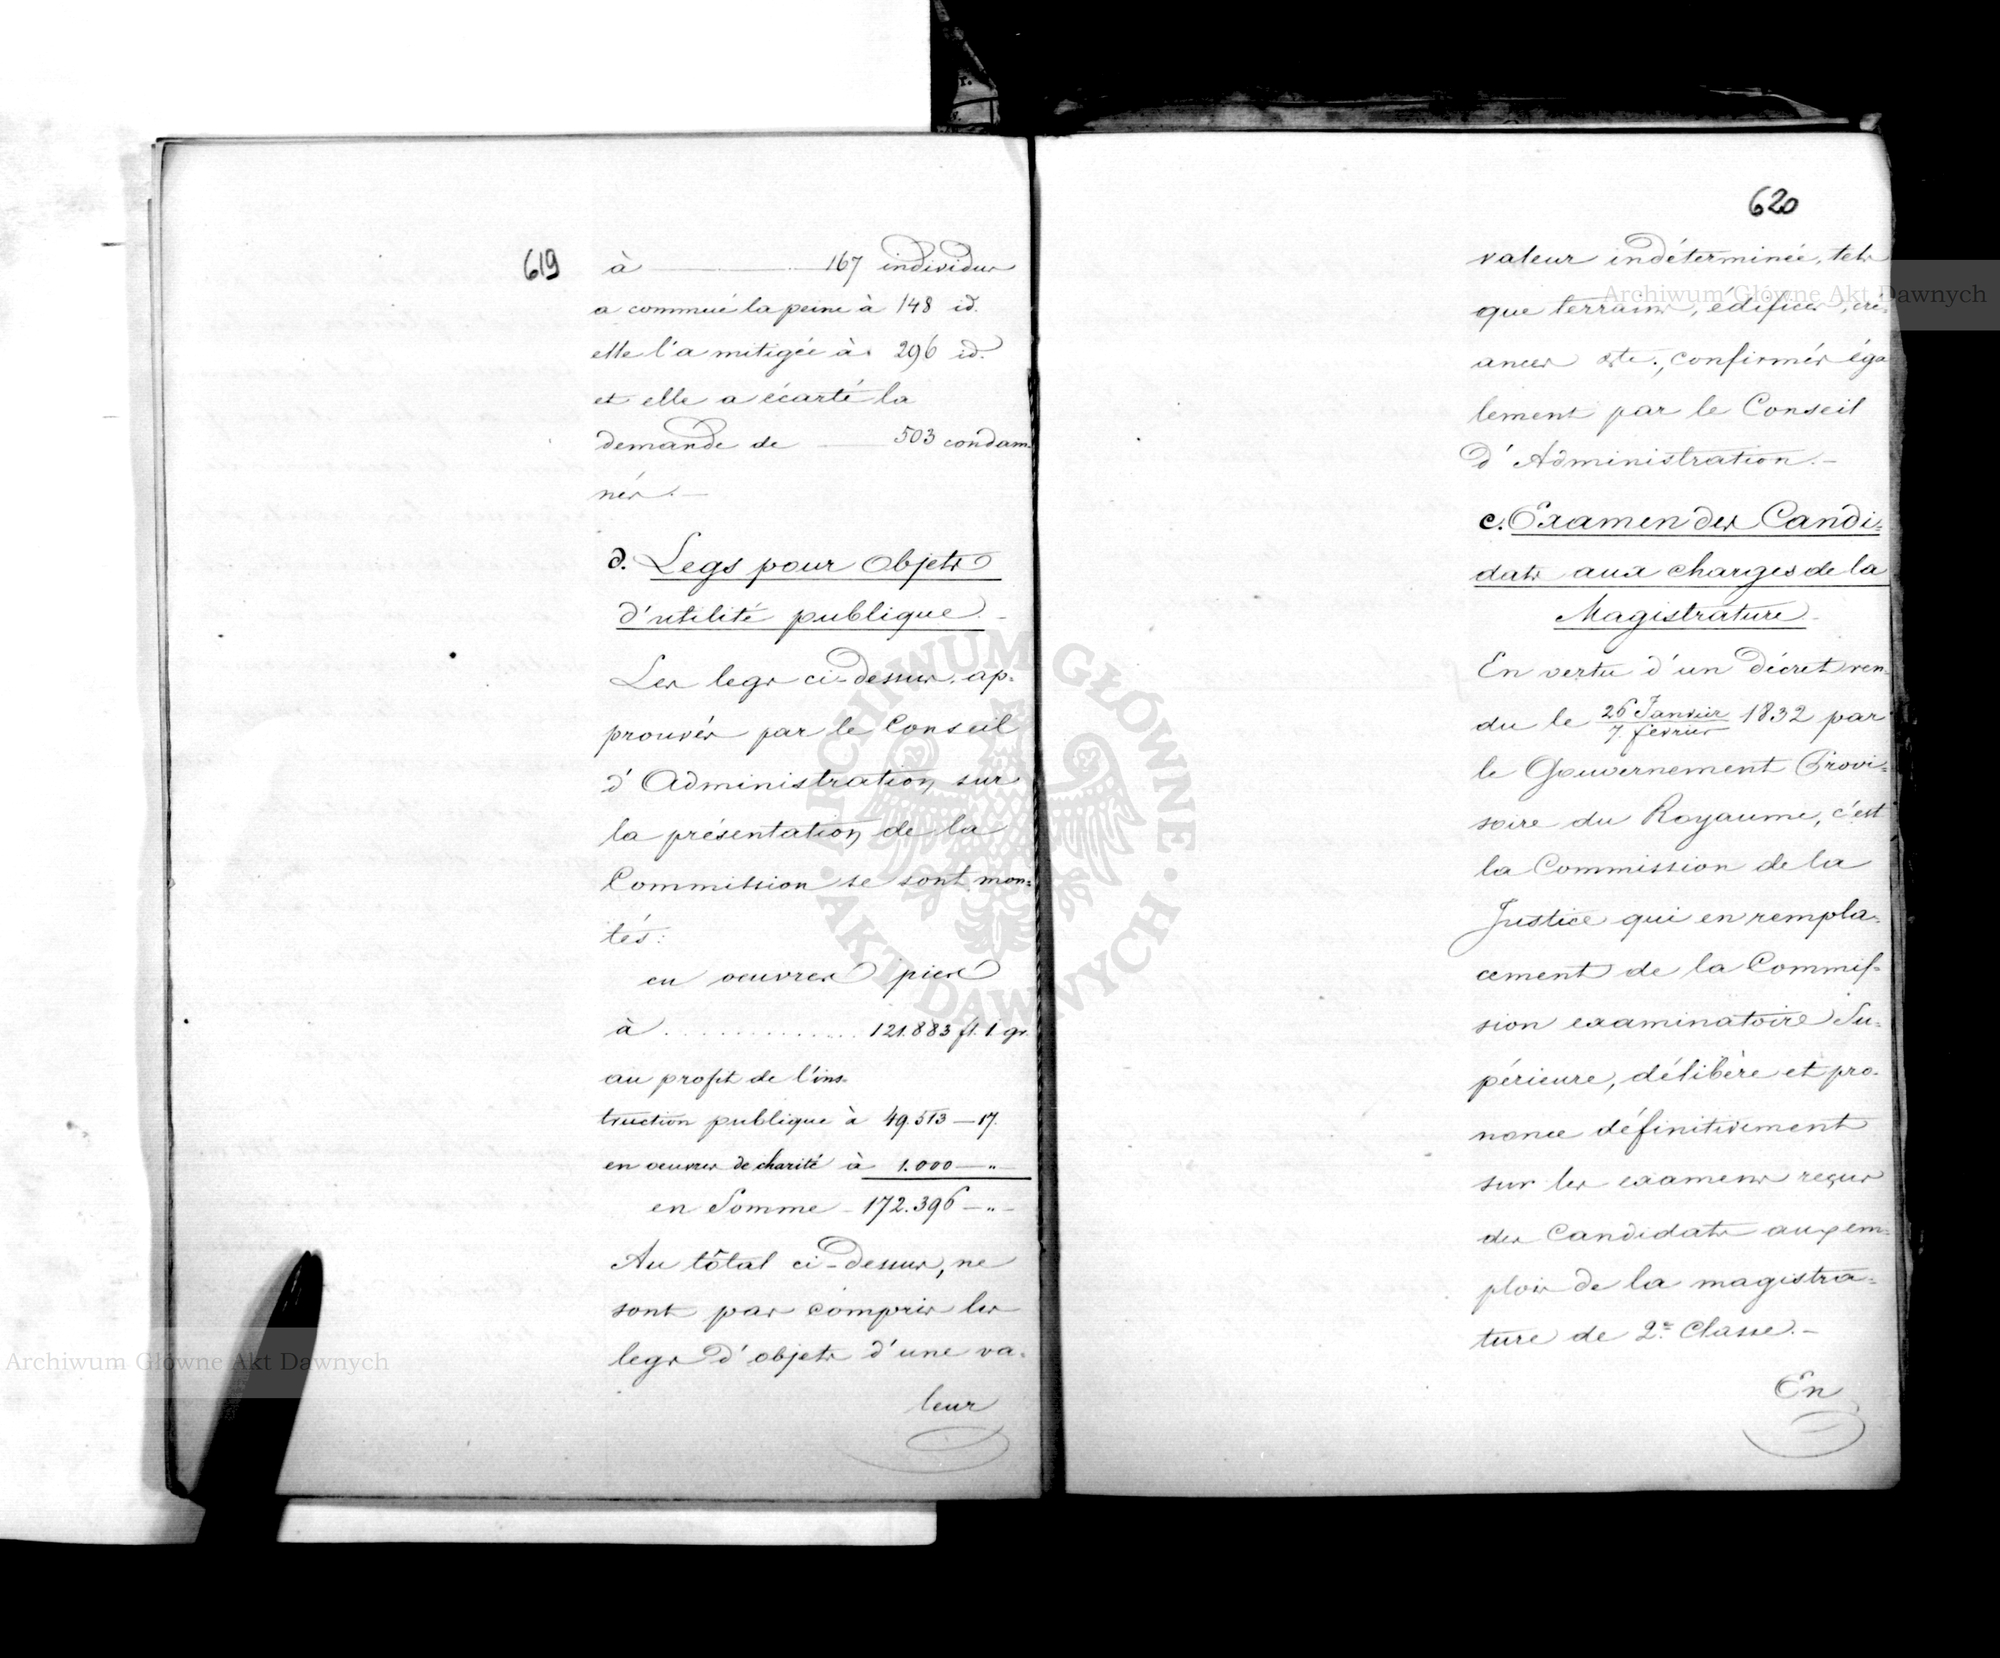 619
à 167 individus
a commué la peine à 148 id.
elle l'a mitigée à 296 id.
et elle a écarté la
demande de 503 condam-
nés.—
d. Legs pour Objets
d'utilité publique.—
Les legs ci-dessus, ap-
prouvés par le Conseil
d'Administration, sur
la présentation de la
Commission se sont mon-
tés:
en oeuvres pies
à . . . . . . . . . . . . 121.883 fl. 1. gr.
au profit de l'ins-
truction publique à 49.513 — 17.
en oeuvres de charité à 1.000 — "
en Somme — 172.396 — " —
Au tôtal ci-dessus, ne
sont pas compris les
legs d'objets d'une va-
leur
620
valeur indéterminée, tels
que terrains, édifices, cré-
ances etc., confirmés éga
lement par le Conseil
d'Administration.—
e. Examen des Candi-
dats aux charges de la
Magistrature.—
En vertu d'un décret ren-
du le 26 Janvier / 7. février 1832 par
le Gouvernement Provi-
soire du Royaume, c'est
la Commission de la
Justice qui en rempla-
cement de la Commis-
sion examinatoire Su-
périeure, délibère et pro-
nonce définitivement
sur les examens reçus
des Candidats aux em-
plois de la magistra-
ture de 2e Classe.—
En
ARCHIWUM GŁÓWNE · AKT DAWNYCH ·
Archiwum Główne Akt Dawnych
Archiwum Główne Akt Dawnych